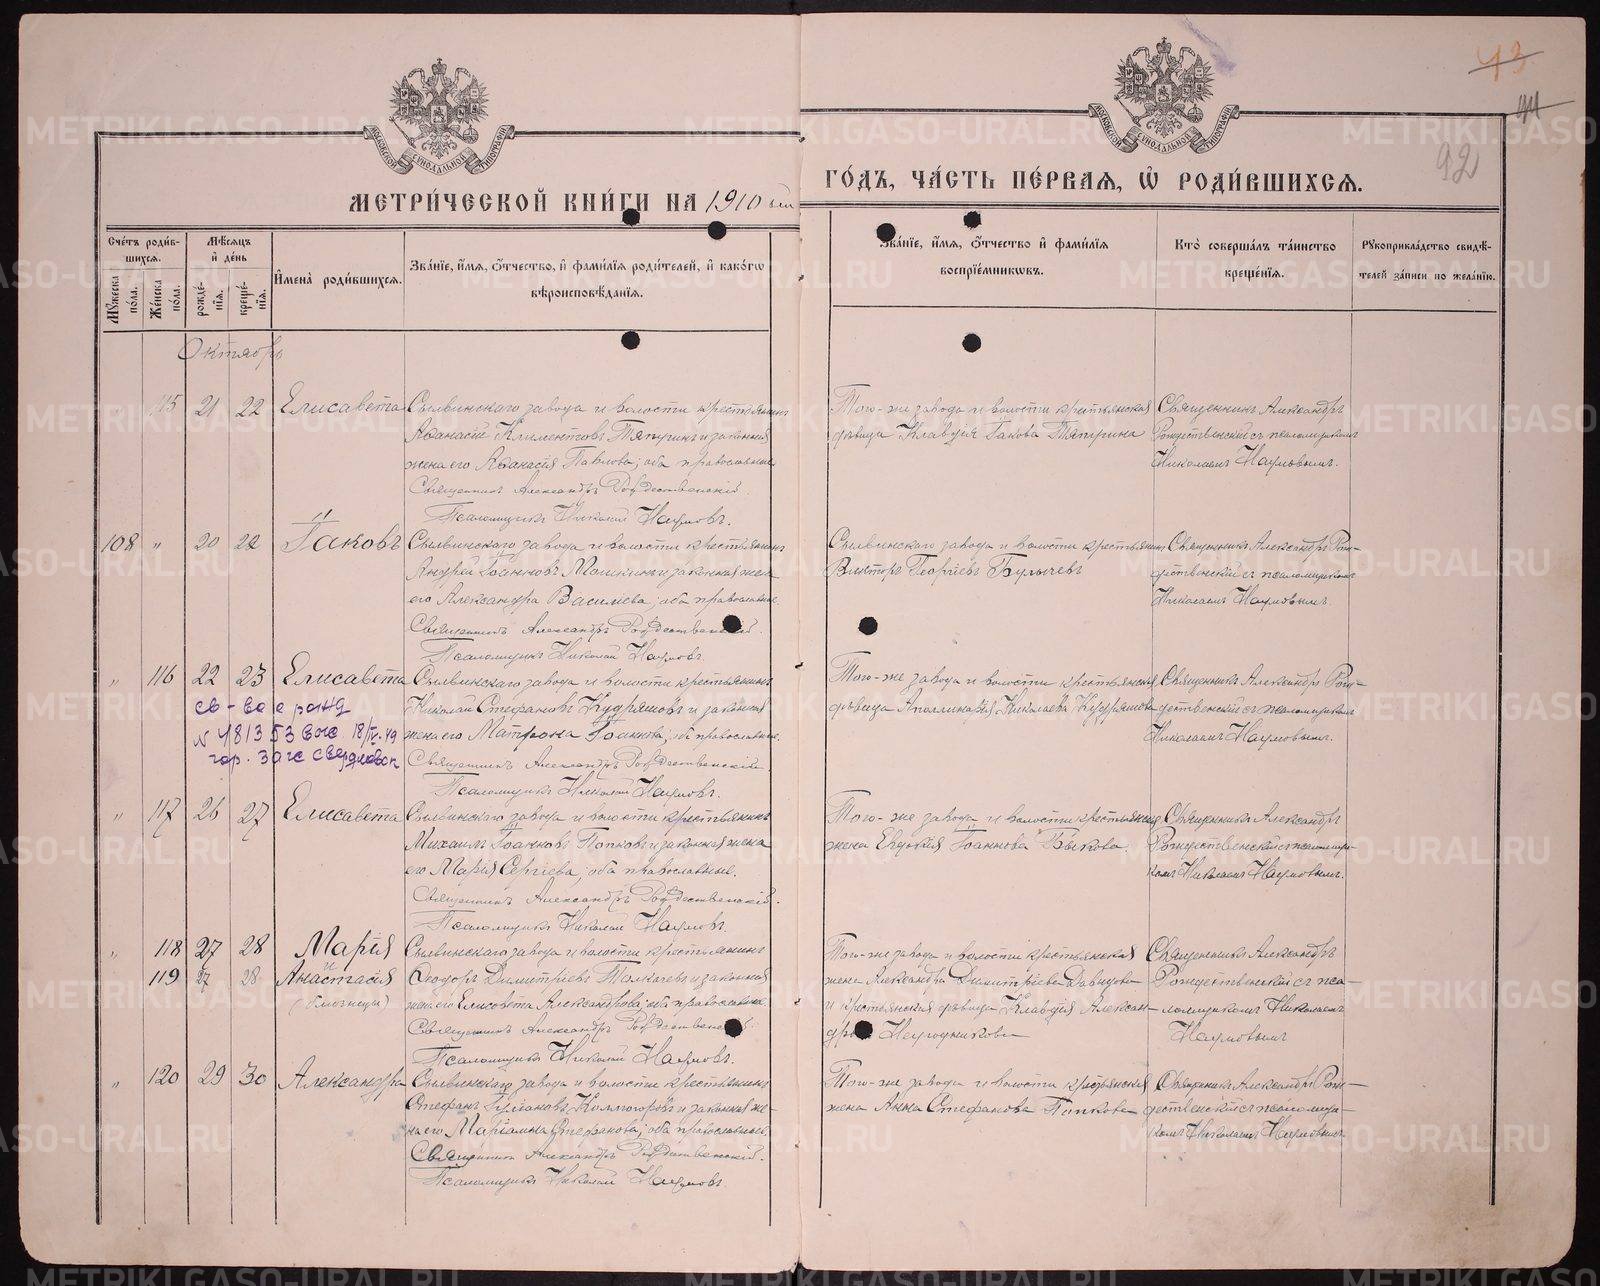 МЕТРИ́ЧЕСКОЙ КНИ́ГИ НА 1910 ый
ГО́ДЪ, ЧА́СТЬ ПЕ́РВАѦ, Ѡ҆ РОДИ́ВШИХСѦ.
43
44
92
МОСКОВСКОЙ СѴНОДАЛЬНОЙ ТИПОГРАФІИ
МОСКОВСКОЙ СѴНОДАЛЬНОЙ ТИПОГРАФІИ
Сче́тъ роди́вшихсѧ.
Мꙋ́жеска по́ла.
Же́нска по́ла.
Мѣ́сѧцъ и҆ де́нь
рожде́нїѧ.
креще́нїѧ.
И҆мена̀ роди́вшихсѧ.
Зва́нїе, и҆́мѧ, ѻ҆́тчество, и҆ фами́лїѧ роди́телей, и҆ како́гѡ
вѣроисповѣ́данїѧ.
Зва́нїе, и҆́мѧ, ѻ҆́тчество и҆ фами́лїѧ
воспрїе́мникѡвъ.
Кто̀ соверша́лъ та́инство
креще́нїѧ.
Рꙋкоприкла́дство свидѣ́-
телей за́писи по жела́нїю.
Октябрь
115 21 22 Елисавета
Сылвинскаго завода и волости крестьянинъ
Аѳанасій Климентовъ Тяпугинъ и законная
жена его Аѳанасія Павлова; оба православные.
Священникъ Александръ Рождественскій.
Псаломщикъ Николай Наумовъ.
Того-же завода и волости крестьянская
дѣвица Клавдія Іакова
Священникъ Александръ
Рождественскій съ псаломщикомъ
Николаемъ Наумовымъ.
108 " 20 22 Іаковъ
Сылвинскаго завода и волости крестьянинъ
Андрей Іоанновъ Мошкинъ и законная жена
его Александра Василиева; оба православные.
Священникъ Александръ Рождественскій.
Псаломщикъ Николай Наумовъ.
Сылвинскаго завода и волости крестьянинъ
Викторъ Георгіевъ Булычевъ
Священникъ Александръ Рож-
дественскій съ псаломщикомъ
Николаемъ Наумовымъ.
" 116 22 23 Елисавета
св-во о рожд
N 481353 18/IV-49
гор. Загс Свердловск
Сылвинскаго завода и волости крестьянинъ
Николай Стефановъ Кудряшовъ и законная
жена его Матрона Іоаннова; оба православные.
Священникъ Александръ Рождественскій.
Псаломщикъ Николай Наумовъ.
Того-же завода и волости крестьянская
дѣвица Аполлинарія Николаева Кудряшова
Священникъ Александръ Рож-
дественскій съ псаломщикомъ
Николаемъ Наумовымъ.
" 117 26 27 Елисавета
Сылвинскаго завода и волости крестьянинъ
Михаилъ Іоанновъ Попковъ и законная жена
его Марія Сергіева; оба православные.
Священникъ Александръ Рождественскій.
Псаломщикъ Николай Наумовъ.
Того-же завода и волости крестьянская
жена Евдокія Іоаннова Быкова
Священникъ Александръ
Рождественскій съ псаломщи-
комъ Николаемъ Наумовымъ.
" 118 27 28 Марія
и
119 27 28 Анастасія
(близнецы)
Сылвинскаго завода и волости крестьянинъ
Ѳеодоръ Димитріевъ Толкачевъ и законная
жена его Елисавета Александрова; оба православные.
Священникъ Александръ Рождественскій.
Псаломщикъ Николай Наумовъ.
Того-же завода и волости крестьянская
жена Александра Димитріева Давидова
и крестьянская дѣвица Клавдія Алексан-
дрова
Священникъ Александръ
Рождественскій съ пса-
ломщикомъ Николаемъ
Наумовымъ
" 120 29 30 Александра
Сылвинскаго завода и волости крестьянинъ
Стефанъ Іуліановъ Колмогоровъ и законная же-
на его Маріамна Стефанова; оба православные.
Священникъ Александръ Рождественскій.
Псаломщикъ Николай Наумовъ.
Того-же завода и волости крестьянская
жена Анна Стефанова Попкова
Священникъ Александръ Рож-
дественскій съ псаломщи-
комъ Николаемъ Наумовымъ
METRIKI.GASO-URAL.RU